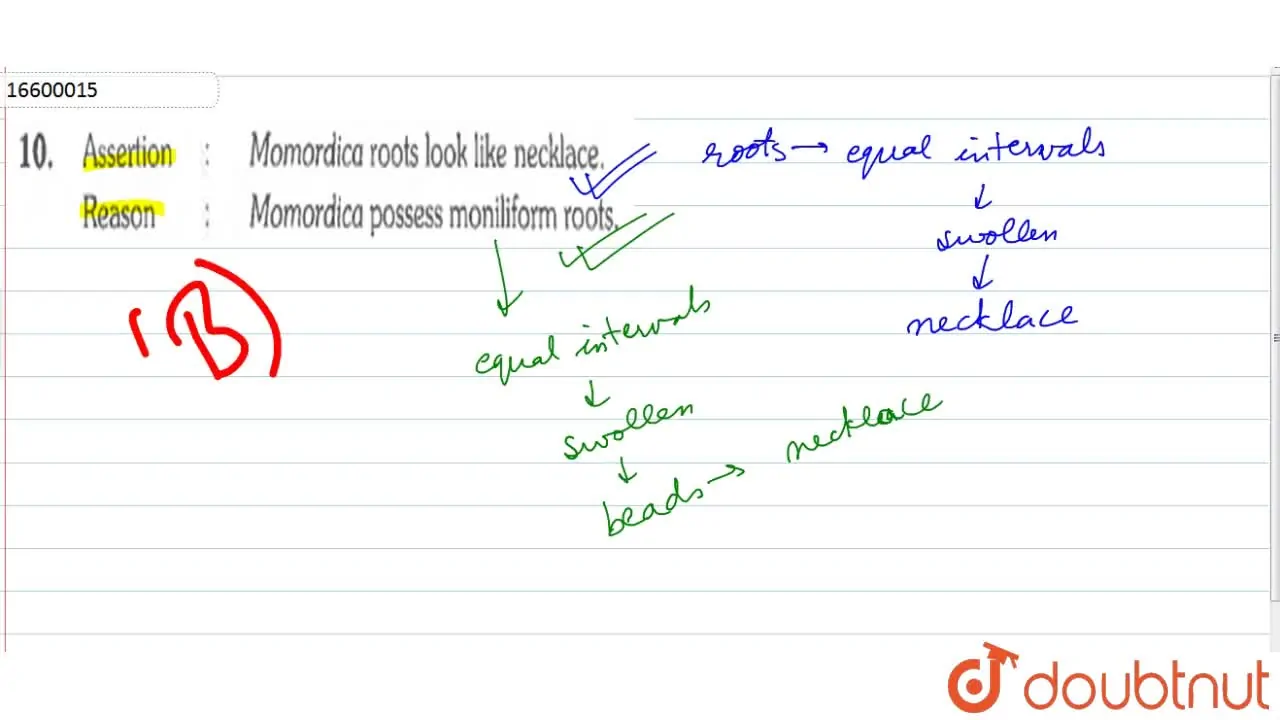 16600015
10. Assertion : Momordica roots look like necklace.
Reason : Momordica possess moniliform roots.
roots → equal intervals
↓
swollen
↓
necklace
↓
equal intervals
↓
swollen
↓
beads → necklace
(B)
doubtnut